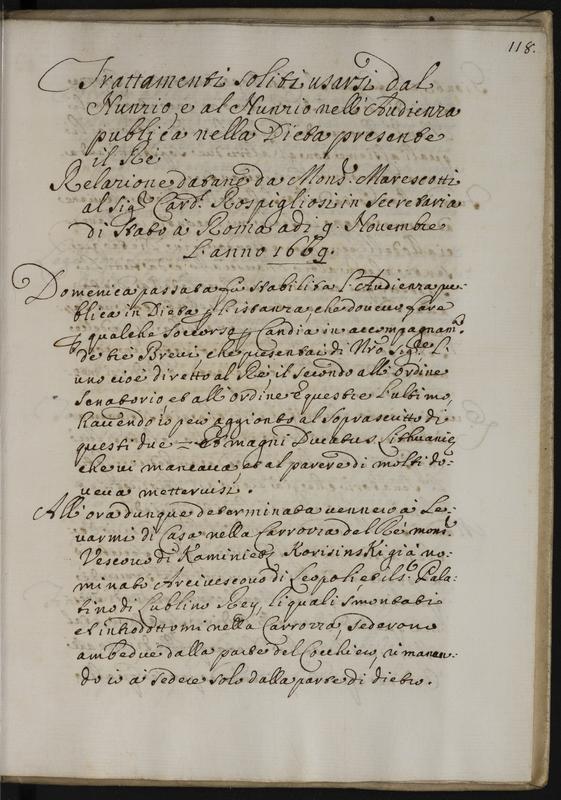 118.
Trattamenti soliti usarsi dal
Nunzio e al Nunzio nell'Audienza
publica nella Dieta presente
il Rè
Relazione datane da Mons.r Marescotti
al Sig.r Card.l Rospigliosi in Secretaria
di Stato à Roma adi 9. Novembre
L'anno 1669.
Domenica passata fu stabilita l'Audienza pu-
blica in Dieta p l'istanza, che dovevo fare
p qualche soccorso p Candia in accompagnam.to
de trè Brevi, che presentai di Nro Sig.re Li
uno cioè diretto al Rè, il secondo all'ordine
senatorio et all'ordine Equestre l'ultimo,
havendo io però aggionto al soprascritto di
questi due = et magni Ducatus Lithuaniæ,
che vi mancava, et al parere di molti do:
veva mettervisi.
All'ora dunque determinata vennero à Le:
varmi di Casa nella Carrozza del Rè mons.r
Vescovo di Kaminietz Korisinski già no:
minato Arcivescovo di Leopoli et il s.r Pala:
tino di Lublino Rey, li quali smontati
et introdottomi nella Carrozza, sederono
ambedue dalla parte del Cocchiero, rimanen:
do io à sedere solo dalla parte di dietro.